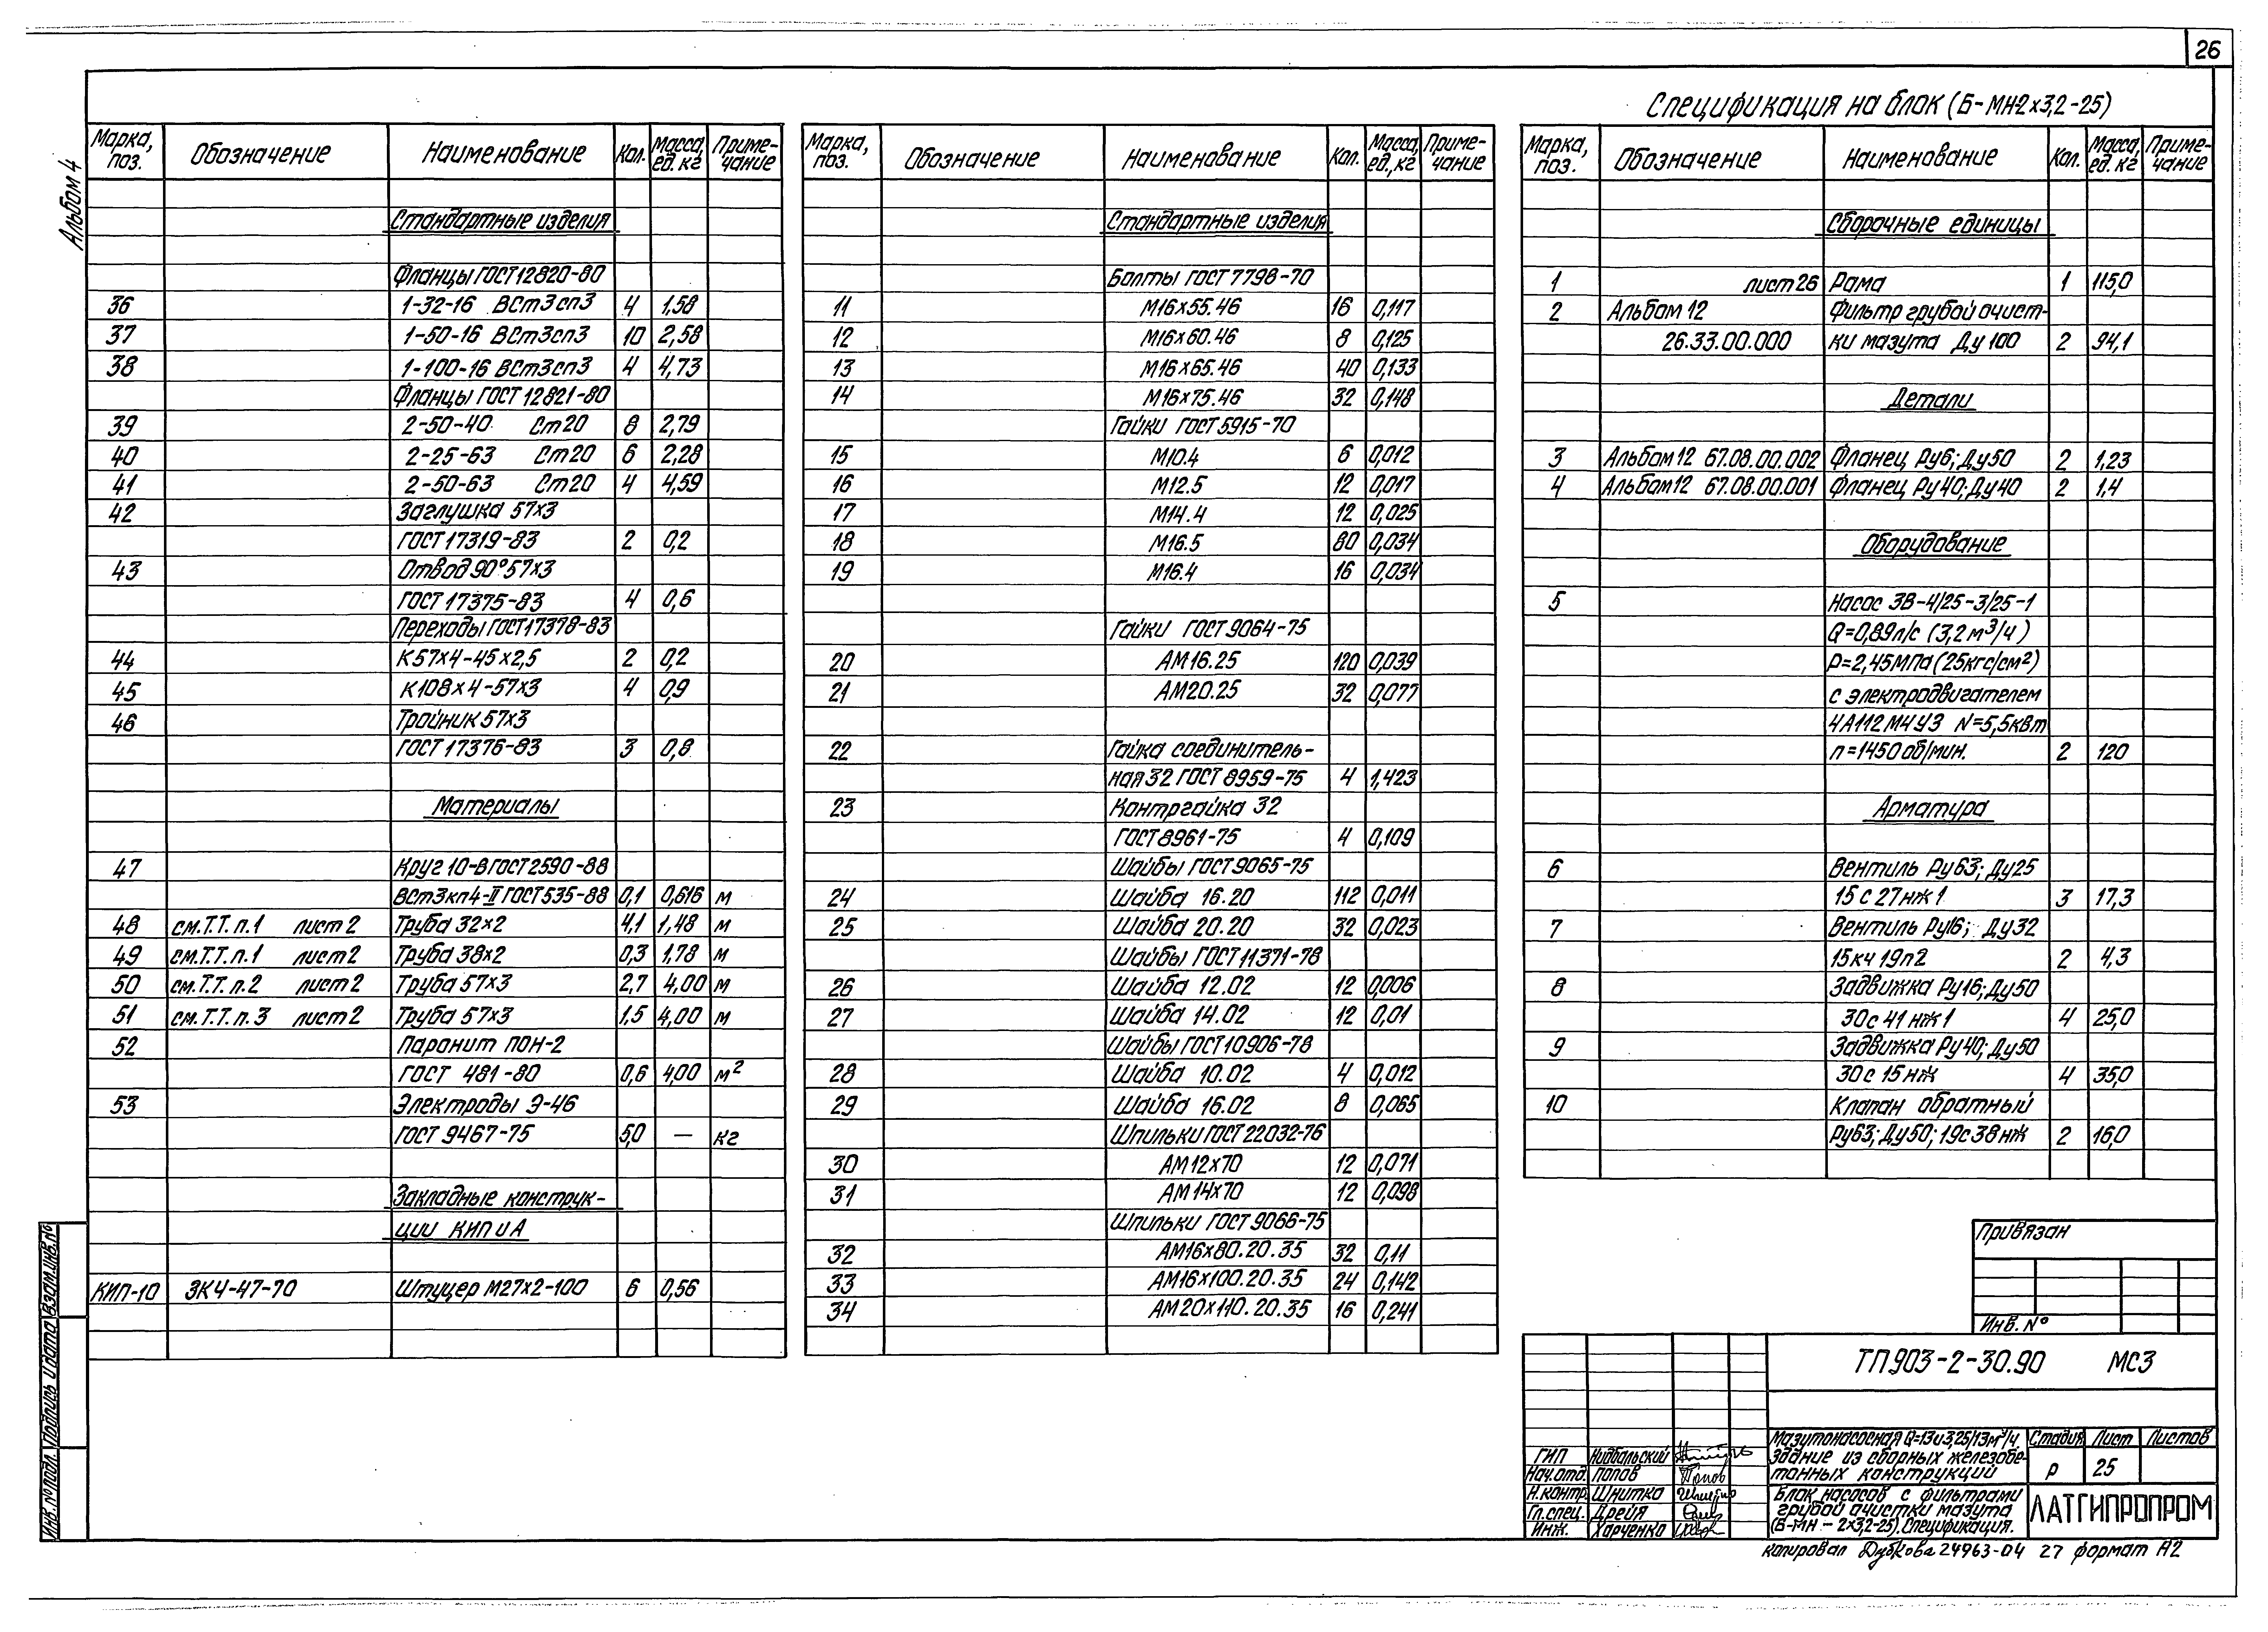 26
Альбом 4
Спецификация на блок (Б-МН-2х3,2-25)
Марка, поз. Обозначение Наименование Кол. Масса, ед. кг Примечание
Стандартные изделия
Фланцы ГОСТ 12820-80
36 1-32-16 ВСт3сп3 4 1,58
37 1-50-16 ВСт3сп3 10 2,58
38 1-100-16 ВСт3сп3 4 4,73
Фланцы ГОСТ 12821-80
39 2-50-40 Ст20 8 2,79
40 2-25-63 Ст20 6 2,28
41 2-50-63 Ст20 4 4,59
42 Заглушка 57х3
ГОСТ 17319-83 2 0,2
43 Отвод 90° 57х3
ГОСТ 17375-83 4 0,6
Переходы ГОСТ 17378-83
44 К57х4-45х2,5 2 0,2
45 К108х4-57х3 4 0,9
46 Тройник 57х3
ГОСТ 17376-83 3 0,8
Материалы
47 Круг 10-В ГОСТ 2590-88
ВСт3кп4-II ГОСТ 535-88 0,1 0,616 м
48 см.Т.Т. п.1 лист 2 Труба 32х2 4,1 1,48 м
49 см.Т.Т. п.1 лист 2 Труба 38х2 0,3 1,78 м
50 см.Т.Т. п.2 лист 2 Труба 57х3 2,7 4,00 м
51 см.Т.Т. п.3 лист 2 Труба 57х3 1,5 4,00 м
52 Паронит ПОН-2
ГОСТ 481-80 0,6 4,00 м²
53 Электроды Э-46
ГОСТ 9467-75 5,0 — кг
Закладные конструк-
ции КИП и А
КИП-10 ЗК4-47-70 Штуцер М27х2-100 6 0,56
Марка, поз. Обозначение Наименование Кол. Масса, ед., кг Примечание
Стандартные изделия
Болты ГОСТ 7798-70
11 М16х55.46 16 0,117
12 М16х60.46 8 0,125
13 М16х65.46 40 0,133
14 М16х75.46 32 0,148
Гайки ГОСТ 5915-70
15 М10.4 6 0,012
16 М12.5 12 0,017
17 М14.4 12 0,025
18 М16.5 80 0,034
19 М16.4 16 0,034
Гайки ГОСТ 9064-75
20 АМ16.25 120 0,039
21 АМ20.25 32 0,077
22 Гайка соединитель-
ная 32 ГОСТ 8959-75 4 1,423
23 Контргайка 32
ГОСТ 8961-75 4 0,109
Шайбы ГОСТ 9065-75
24 Шайба 16.20 112 0,011
25 Шайба 20.20 32 0,023
Шайбы ГОСТ 11371-78
26 Шайба 12.02 12 0,006
27 Шайба 14.02 12 0,01
Шайбы ГОСТ 10906-78
28 Шайба 10.02 4 0,012
29 Шайба 16.02 8 0,065
Шпильки ГОСТ 22032-76
30 АМ12х70 12 0,071
31 АМ14х70 12 0,098
Шпильки ГОСТ 9066-75
32 АМ16х80.20.35 32 0,11
33 АМ16х100.20.35 24 0,142
34 АМ20х110.20.35 16 0,241
Марка, поз. Обозначение Наименование Кол. Масса, ед. кг Примечание
Сборочные единицы
1 лист 26 Рама 1 115,0
2 Альбом 12 Фильтр грубой очист-
26.33.00.000 ки мазута Ду 100 2 94,1
Детали
3 Альбом 12 67.08.00.002 Фланец Ру6; Ду50 2 1,23
4 Альбом 12 67.08.00.001 Фланец Ру40; Ду40 2 1,4
Оборудование
5 Насос 3В-4/25-3/25-1
Q=0,89л/с (3,2 м³/ч)
Р=2,45МПа (25кгс/см²)
с электродвигателем
4А112М4У3 N=5,5квт
n=1450 об/мин. 2 120
Арматура
6 Вентиль Ру63; Ду25
15с27нж1 3 17,3
7 Вентиль Ру16; Ду32
15кч19п2 2 4,3
8 Задвижка Ру16; Ду50
30с41нж1 4 25,0
9 Задвижка Ру40; Ду50
30с15нж 4 35,0
10 Клапан обратный
Ру63; Ду50; 19с38нж 2 16,0
Привязан
Инв. №
ТП 903-2-30.90 МС3
Мазутонасосная Q=13и3,25/13м³/ч.
Здание из сборных железобе-
тонных конструкций
Стадия Лист Листов
р 25
Блок насосов с фильтрами
грубой очистки мазута
(Б-МН-2х3,2-25). Спецификация.
ЛАТГИПРОПРОМ
ГИП Нидбальский
Нач.отд. Попов Попов
Н.контр. Шнитко
Гл.спец. Дрейя
Инж. Харченко
копировал Дубкова 24963-04 27 формат А2
Инв. № подл. Подпись и дата Взам.инв.№